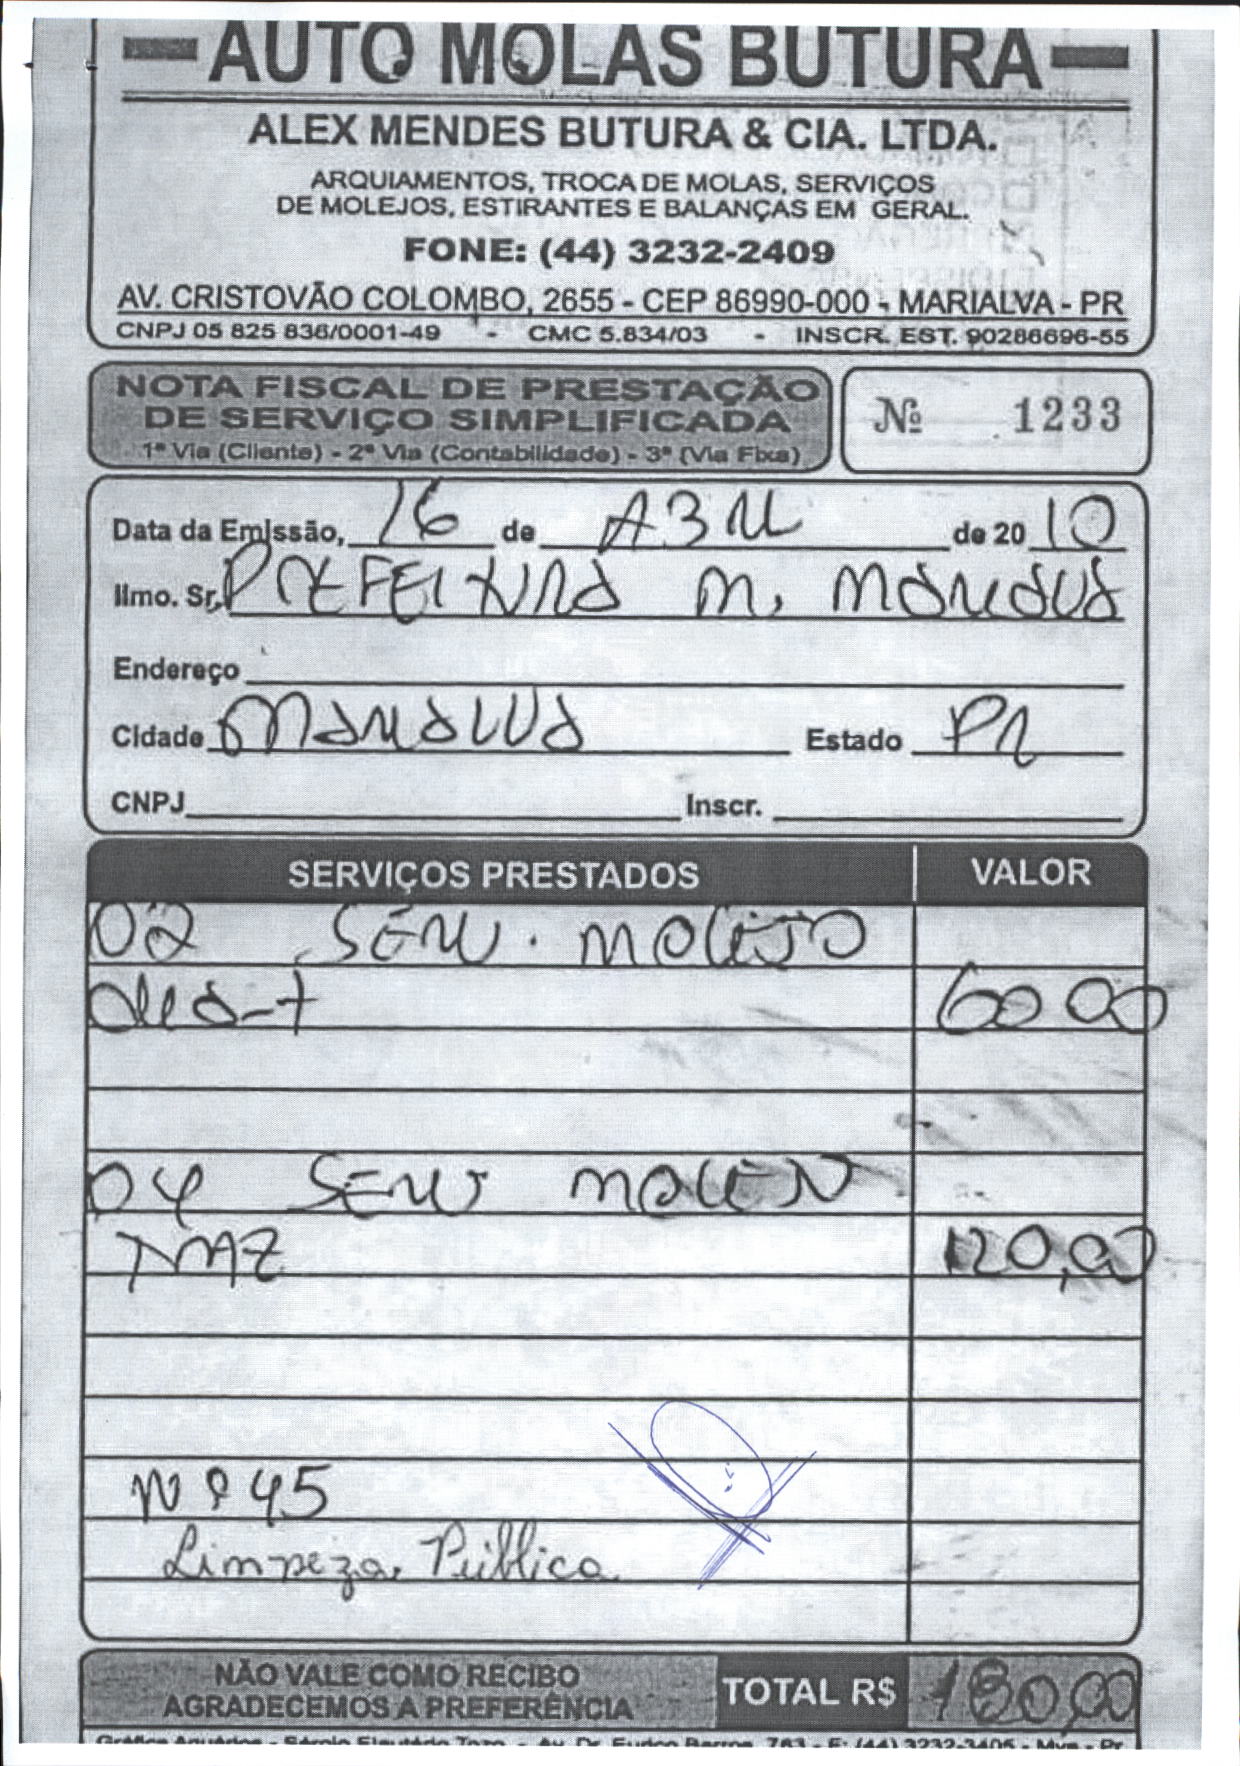 AUTO MOLAS BUTURA
ALEX MENDES BUTURA & CIA. LTDA.
ARQUIAMENTOS, TROCA DE MOLAS, SERVIÇOS
DE MOLEJOS, ESTIRANTES E BALANÇAS EM GERAL.
FONE: (44) 3232-2409
AV. CRISTOVÃO COLOMBO, 2655 - CEP 86990-000 - MARIALVA - PR
CNPJ 05 825 836/0001-49 - CMC 5.834/03 - INSCR. EST. 90286696-55
NOTA FISCAL DE PRESTAÇÃO
DE SERVIÇO SIMPLIFICADA
1ª Via (Cliente) - 2ª Via (Contabilidade) - 3ª (Via Fixa)
Nº 1233
Data da Emissão, 16 de ABRIL de 20 10
Ilmo. Sr. PREFEITURA M. MARIALVA
Endereço
Cidade MARIALVA Estado PR
CNPJ Inscr.
SERVIÇOS PRESTADOS VALOR
02 SERV. MOLEJO
60,00
04 SERV MOLEJO
TRAZ 120,00
Nº 45
Limpeza Pública
NÃO VALE COMO RECIBO
AGRADECEMOS A PREFERÊNCIA
TOTAL R$ 180,00
Gráfica Aquários - Sérgio Eleutério Tozo - Av. Dr. Eurico Barros, 763 - F: (44) 3232-3405 - Mva - Pr